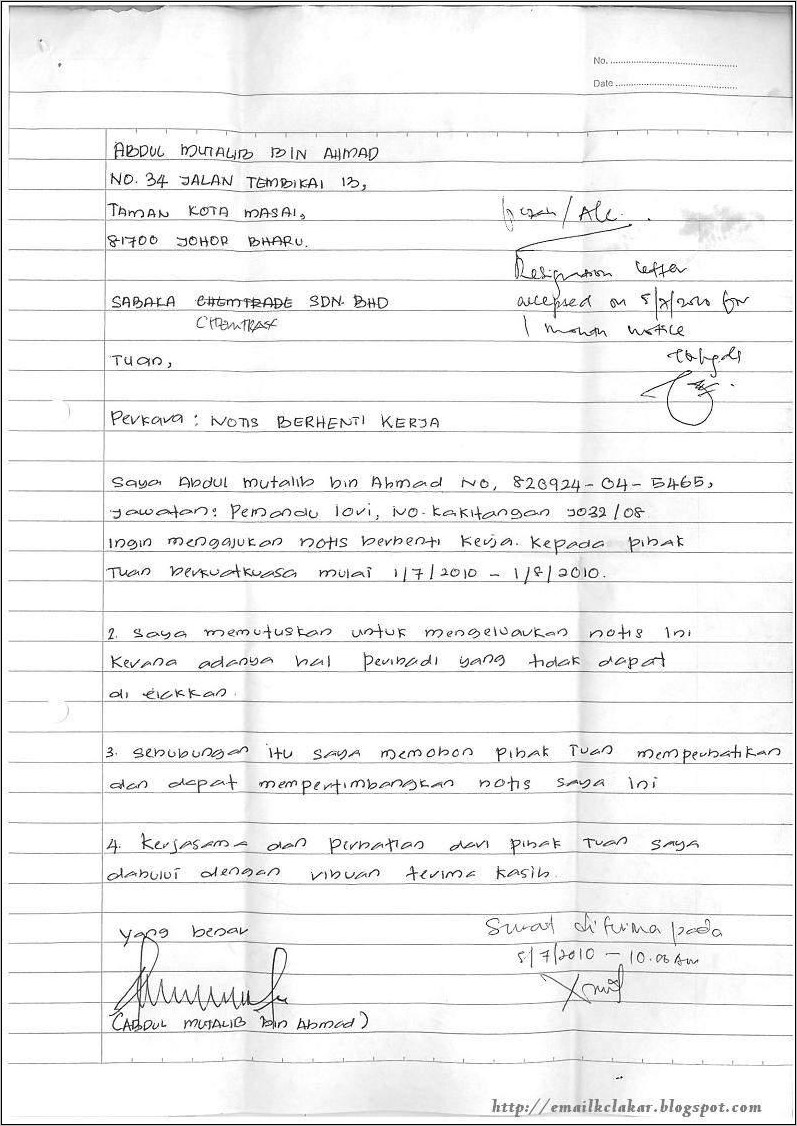 No. ....................
Date ....................
ABDUL MUTALIB BIN AHMAD
NO. 34 JALAN TEMBIKAI 13,
TAMAN KOTA MASAI,
81700 JOHOR BHARU.
Resignation letter
accepted on 5/7/2010 for
1 month notice
SABAKA CHEMTRADE SDN. BHD
CHEMTRAF
Tuan,
Perkara : NOTIS BERHENTI KERJA
Saya Abdul mutalib bin Ahmad NO, 820924-04-5465,
jawatan: Pemandu lori, NO. Kakitangan J032/08
Ingin mengajukan notis berhenti kerja. Kepada pihak
Tuan berkuatkuasa mulai 1/7/2010 - 1/8/2010.
2. Saya memutuskan untuk mengeluarkan notis Ini
Kerana adanya hal peribadi yang tidak dapat
di elakkan.
3. Sehubungan itu saya memohon pihak Tuan memperhatikan
dan dapat mempertimbangkan notis saya ini
4. Kerjasama dan perhatian dari pihak Tuan saya
dahului dengan ribuan terima kasih.
yang benar
(ABDUL MUTALIB bin Ahmad)
Surat diterima pada
5/7/2010 - 10.00 AM
http://emailkclakar.blogspot.com